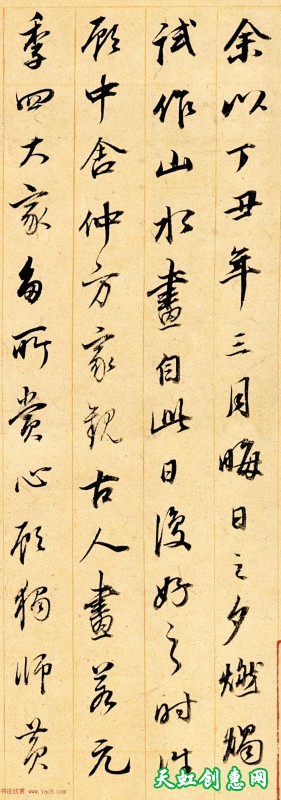 余以丁丑年三月晦日之夕燃燭
試作山水畫自此日復好之时往
顾中舍仲方家觀古人畫若元
季四大家多所赏心顾獨师黄
书法欣赏
www.yac8.com
天虹创意网